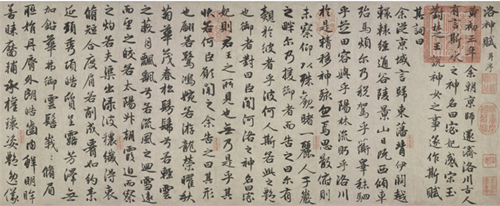 洛神賦 并序
黃初三年余朝京師還濟洛川古人
有言斯水之神名曰宓妃感宋玉
對楚王說神女之事遂作斯賦
其詞曰
余從京域言歸東藩背伊闕越
轘轅經通谷陵景山日既西傾車
殆馬煩爾乃稅駕乎蘅皋秣駟
乎芝田容與乎陽林流眄乎洛川
於是精移神駭忽焉思散俯則
未察仰以殊觀睹一麗人于巖
之畔爾乃援御者而告之曰爾有
覿於彼者乎彼何人斯若此之艷
也御者對曰臣聞河洛之神名曰宓
妃則君王之所見也無乃是乎其
狀若何臣願聞之余告之曰其形
也翩若驚鴻婉若游龍榮曜秋
菊華茂春松髣髴兮若輕雲
之蔽月飄飖兮若流風之迴雪遠
而望之皎若太陽升朝霞迫而察
之灼若芙蕖出淥波穠纖得衷
脩短合度肩若削成腰如約素
延頸秀項皓質呈露芳澤無
加鉛華弗御雲髻峨峨脩眉
聯娟丹脣外朗皓齒內鮮明眸
善睞靨輔承權瓌姿艷逸儀